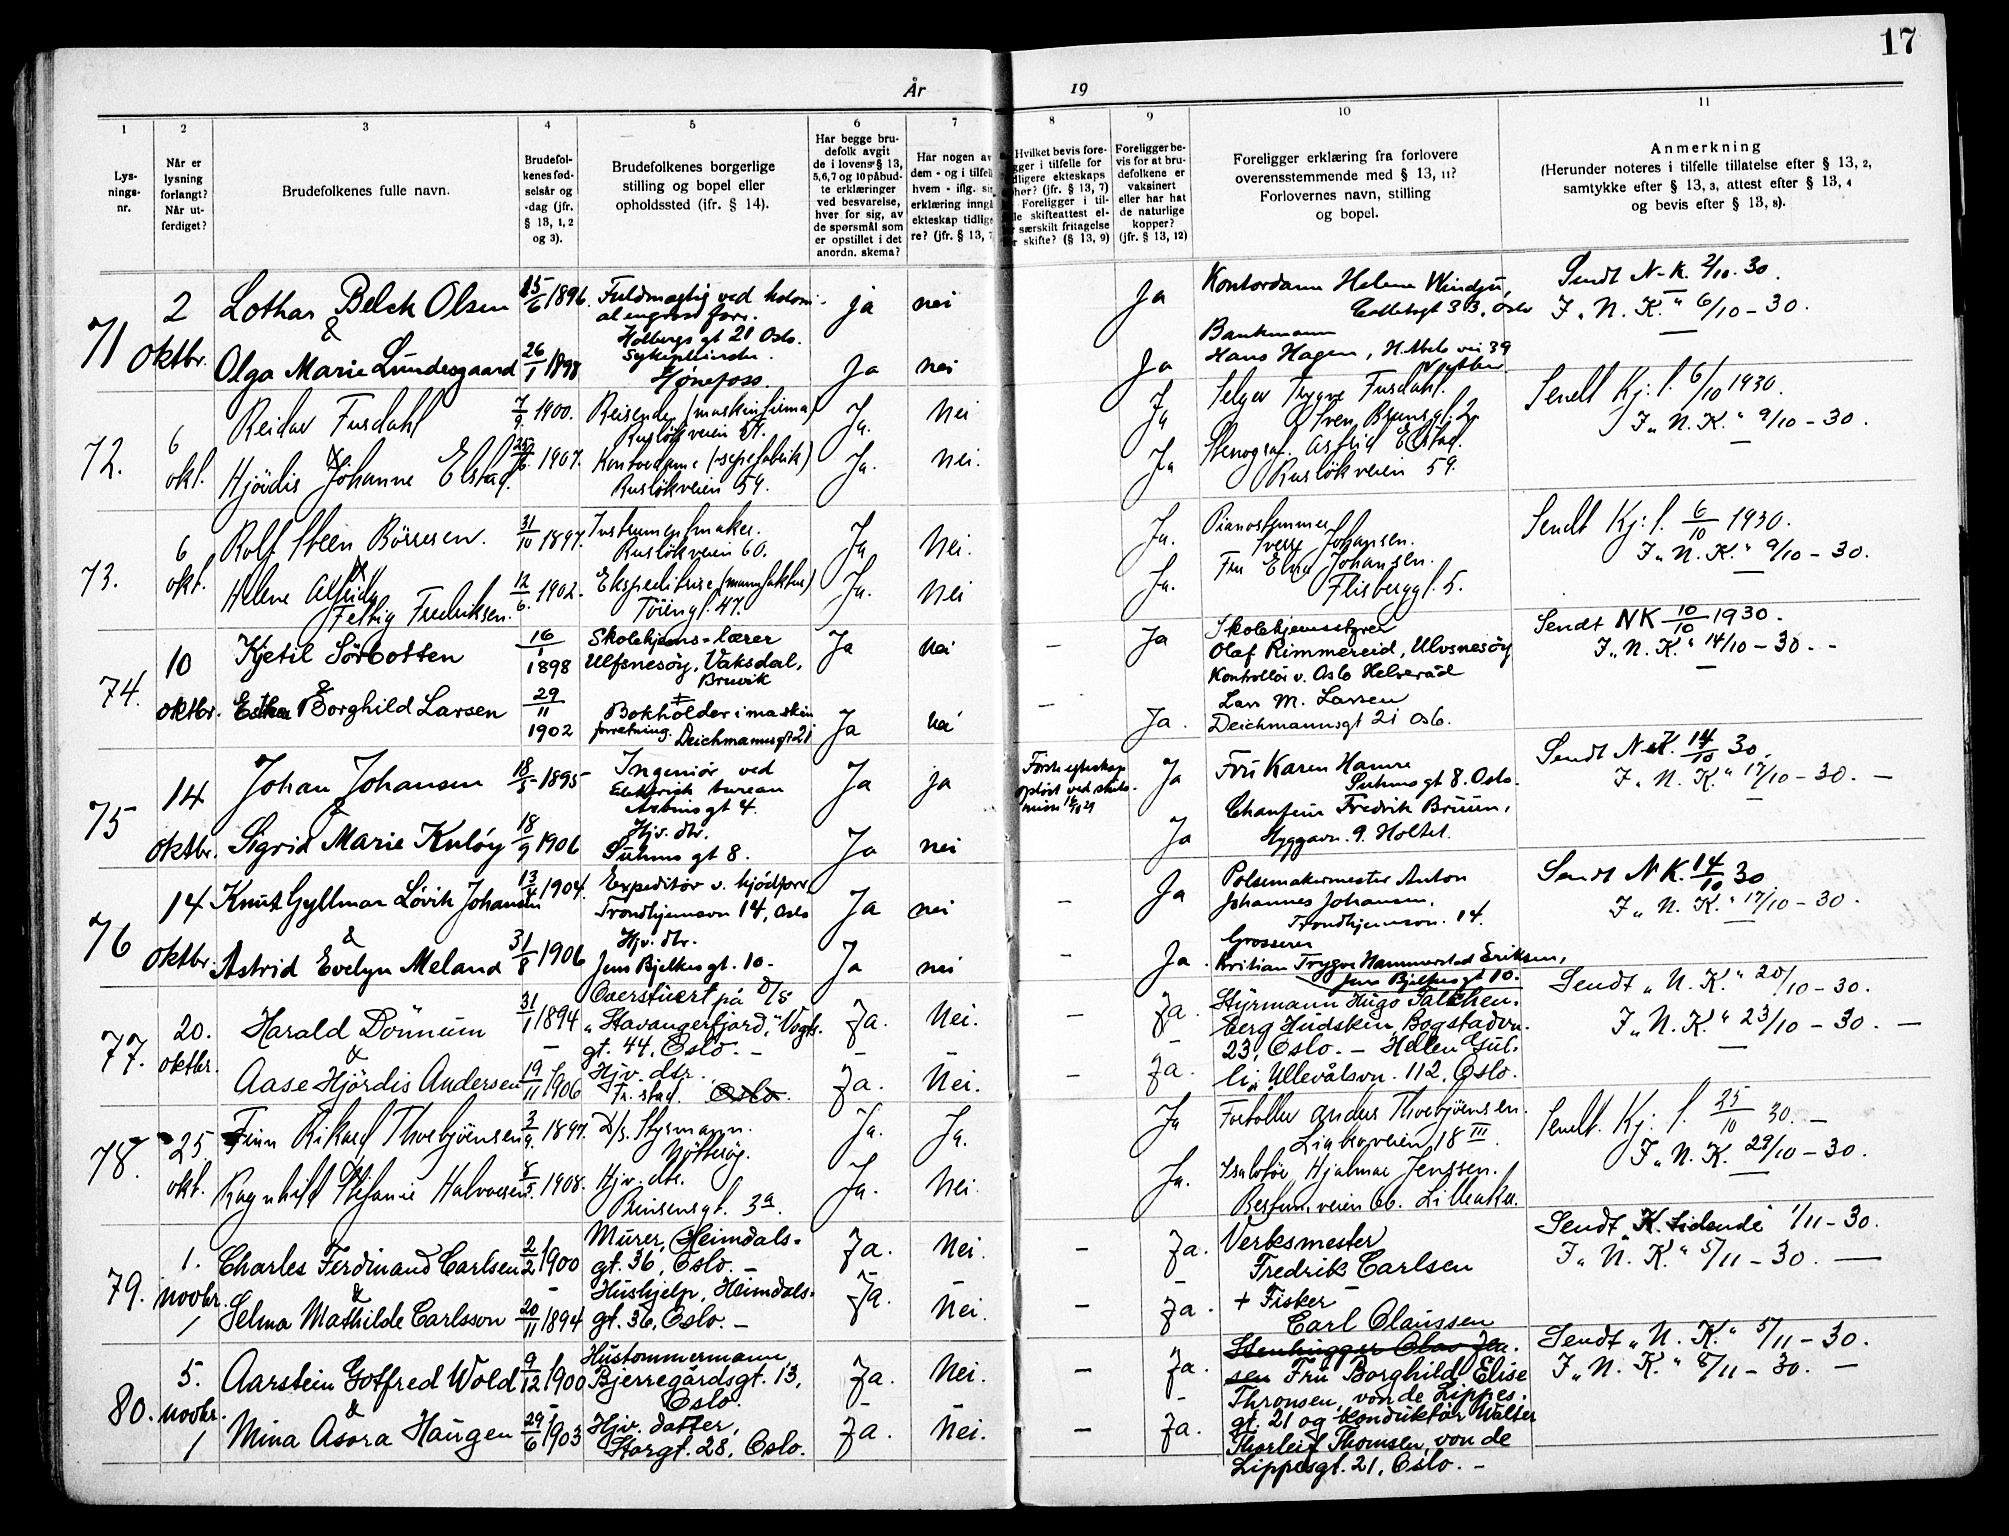 17
År 19
1
2
3
4
5
6
7
8
9
10
11
Lys-
nings-
nr.
Når er
lysning
forlangt?
Når ut-
ferdiget?
Brudefolkenes fulle navn.
Brudefol-
kenes fød-
selsår og
-dag (jfr.
§ 13, 1, 2
og 3).
Brudefolkenes borgerlige
stilling og bopel eller
opholdssted (ifr. § 14).
Har begge bru-
defolk avgit
de i lovens § 13,
5, 6, 7 og 10 påbud-
te erklæringer
ved besvarelse,
hver for sig, av
de spørsmål som
er opstillet i det
anordn. skema?
Har nogen av
dem - og i tilfell
hvem - iflg. si
erklæring inngå
ekteskap tidlige
re? (jfr. § 13, 7
Hvilket bevis fore-
gger i tilfelle for
dligere ekteskaps
hør? (jfr. § 13, 7)
Foreligger i til-
le skifteattest el-
særskilt fritagelse
r skifte? (§ 13, 9)
Foreligger be-
vis for at bru-
defolkene er
vaksinert
eller har hat
de naturlige
kopper?
(jfr. § 13, 12)
Foreligger erklæring fra forlovere
overensstemmende med § 13, 11?
Forlovernes navn, stilling
og bopel.
Anmerkning
(Herunder noteres i tilfelle tillatelse efter § 13, 2,
samtykke efter § 13, 3, attest efter § 13, 4
og bevis efter § 13, 8).
71
2
Oktbr.
Lothar Belck Olsen
&
Olga Marie Lundesgaard
15/6 1896
26/1 1898
Fuldmægtig ved koloni-
al engros forr.
Holbergs gt 21 Oslo.
Hønefoss.
ja nei
Ja nei
Ja
Ja
Kontordame Helene
33, Oslo
Bankmann
Hans Hagen, H. Abels vei 39
Sendt N.K. 2/10-30.
I „N. K.“ 6/10-30.
72.
6
okt.
Reidar Fusdahl
&
Hjördis Johanne Elstad.
7/9 1900.
1907.
Reisende (maskinfirma)
Rusløkveien
Kontordame (sepefabrik)
Rusløkveien 59.
Ja. Nei
Ja. Nei.
Ja
Ja
Selger Trygve Fusdahl.
Sven Brunsgt. 2.
Stenograf. Astrid Elstad.
Rusløkveien 59.
Sendt Kj: f. 6/10 1930.
I „N. K.“ 9/10-30.
73.
6
okt.
Rolf Steen Börresen.
&
Helene Alfrida
Fettig Fredriksen.
31/10 1897.
12/6. 1902.
Instrumentmaker.
Rusløkveien 60.
Ekspeditrise (manufaktur)
Töiengt. 47.
Ja Nei.
Ja. Nei
Ja.
Ja.
Pianostemmer
Sverre Johansen.
Fru Elna Johansen.
Flisberggt. 5.
Sendt Kj: f. 6/10 1930.
I „N. K.“ 9/10-30.
74.
10
oktbr.
Kjetil Sörbotten
&
Esther Borghild Larsen
16/1
1898
29/11
1902
Skolehjems-lærer
Ulfsnesöy, Vaksdal,
Bruvik
+
Bokholder i maskin
forretning. Deichmannsgt 21
Ja nei
Ja nei
– Ja
– Ja.
Skolehjemsstyrer
Olaf Rimmereid, Ulvsnesöy
Kontrollör v. Oslo Helseråd
Lars M. Larsen
Deichmannsgt 21 Oslo.
Sendt NK 10/10 1930.
I „N. K.“ 14/10-30.-
75
14
Oktbr.
Johan Johansen
&
Sigrid Marie Kulöy
18/5-1895
18/9 1906
Ingeniør ved
Elektrisk bureau
gt 4.
Hjv. dtr.
Suhms gt 8.
Ja ja
Ja nei
Første ekteskap
opløst ved skils-
Ja
Ja
Fru Karen Hamre
Suhms gt 8. Oslo.
Chauffeur Fredrik Bruun,
Hyggavn. 9. Holtet.
Sendt N.K. 14/10 30.
I „N. K.“ 17/10-30.—
76
14
Oktbr.
Knut Gyllmar Lövik Johansen
&
Astrid Evelyn Meland
13/4 1904.
31/8 1906
Expeditör v. kjödforr.
Trondhjemsvn 14, Oslo
Hjv. dtr.
Jens Bjelkes gt. 10.
Ja nei
Ja nei
– Ja
– Ja.
Pölsemakermester Anton
Johannes Johansen,
Trondhjemsvn. 14.
Grosserer
Kristian Trygve Hammerstad Eriksen,
Jens Bjelkesgt 10.
Sendt N K. 14/10 30
I „N. K.“ 17/10-30.
77.
20.
oktbr.
Harald Dönnum
&
Aase Hjördis Andersen
31/1 1894
19/11 1906
Overstuert på D/S
„Stavangerfjord,“ Vogts
gt. 44, Oslo. –
Hjv. dtr.
Fr. stad. Oslo.
Ja. Nei.
Ja. Nei.
– Ja.
– Ja.
Styrmann Hugo Falchen-
berg Hudskin, Bogstadvn.
23, Oslo. – Helen Gul-
li, Ullevålsvn. 112, Oslo.
Sendt „N. K.“ 20/10-30.
I „N. K.“ 23/10-30.—
78.
25.
okt.
Finn Rikard Thorbjörnsen
Ragnhild Stefanie Halvorsen
3/9. 1897.
1908.
D/s. Styrmann.
Nötteröy.
Hjv. dtr.
Prinsensgt. 3a.
Ja. Ja.
Ja. Nei.
Ja
Ja.
Fortoller Anders Thorbjörnsen.
18 III
Hjalmar Jenssen.
66. Lilleaker.
Sendt. Kj: f. 25/10 30.—
I „N. K. 29/10-30.
79.
1.
novbr.
Charles Ferdinand Carlsen
&
Selma Mathilde Carlsson
2/2 1900
20/11 1894
Murer, Heimdals-
gt. 36, Oslo. –
Hushjelp, Heimdals-
gt. 36, Oslo. –
Ja. Nei.
Ja. Nei.
– Ja.
– Ja.
Verksmester
Fredrik Carlsen
+ Fisker
Carl Claussen
Sendt „K. tidende 1/11-30.
I „N. K.“ 5/11-30. —
80.
5.
novbr.
Aarstein Gotfred Wold
&
Mina Asora Haugen
9/12 1900
29/6 1903
Hustømmermann,
Bjerregårdsgt. 13,
Oslo.
Hjv. datter,
Storgt. 28, Oslo.
Ja. Nei.
Ja. Nei.
– Ja.
– Ja.
Stenhugger Olav Jen-
sen Fru Borghild Elise
Thronsen, von de Lippes-
gt. 21 og konduktör Walter
Thorleif Thomsen, von de
Lippesgt. 21, Oslo. –
Sendt „N. K.“ 5/11-30.
I „N. K.“ 8/11-30. —